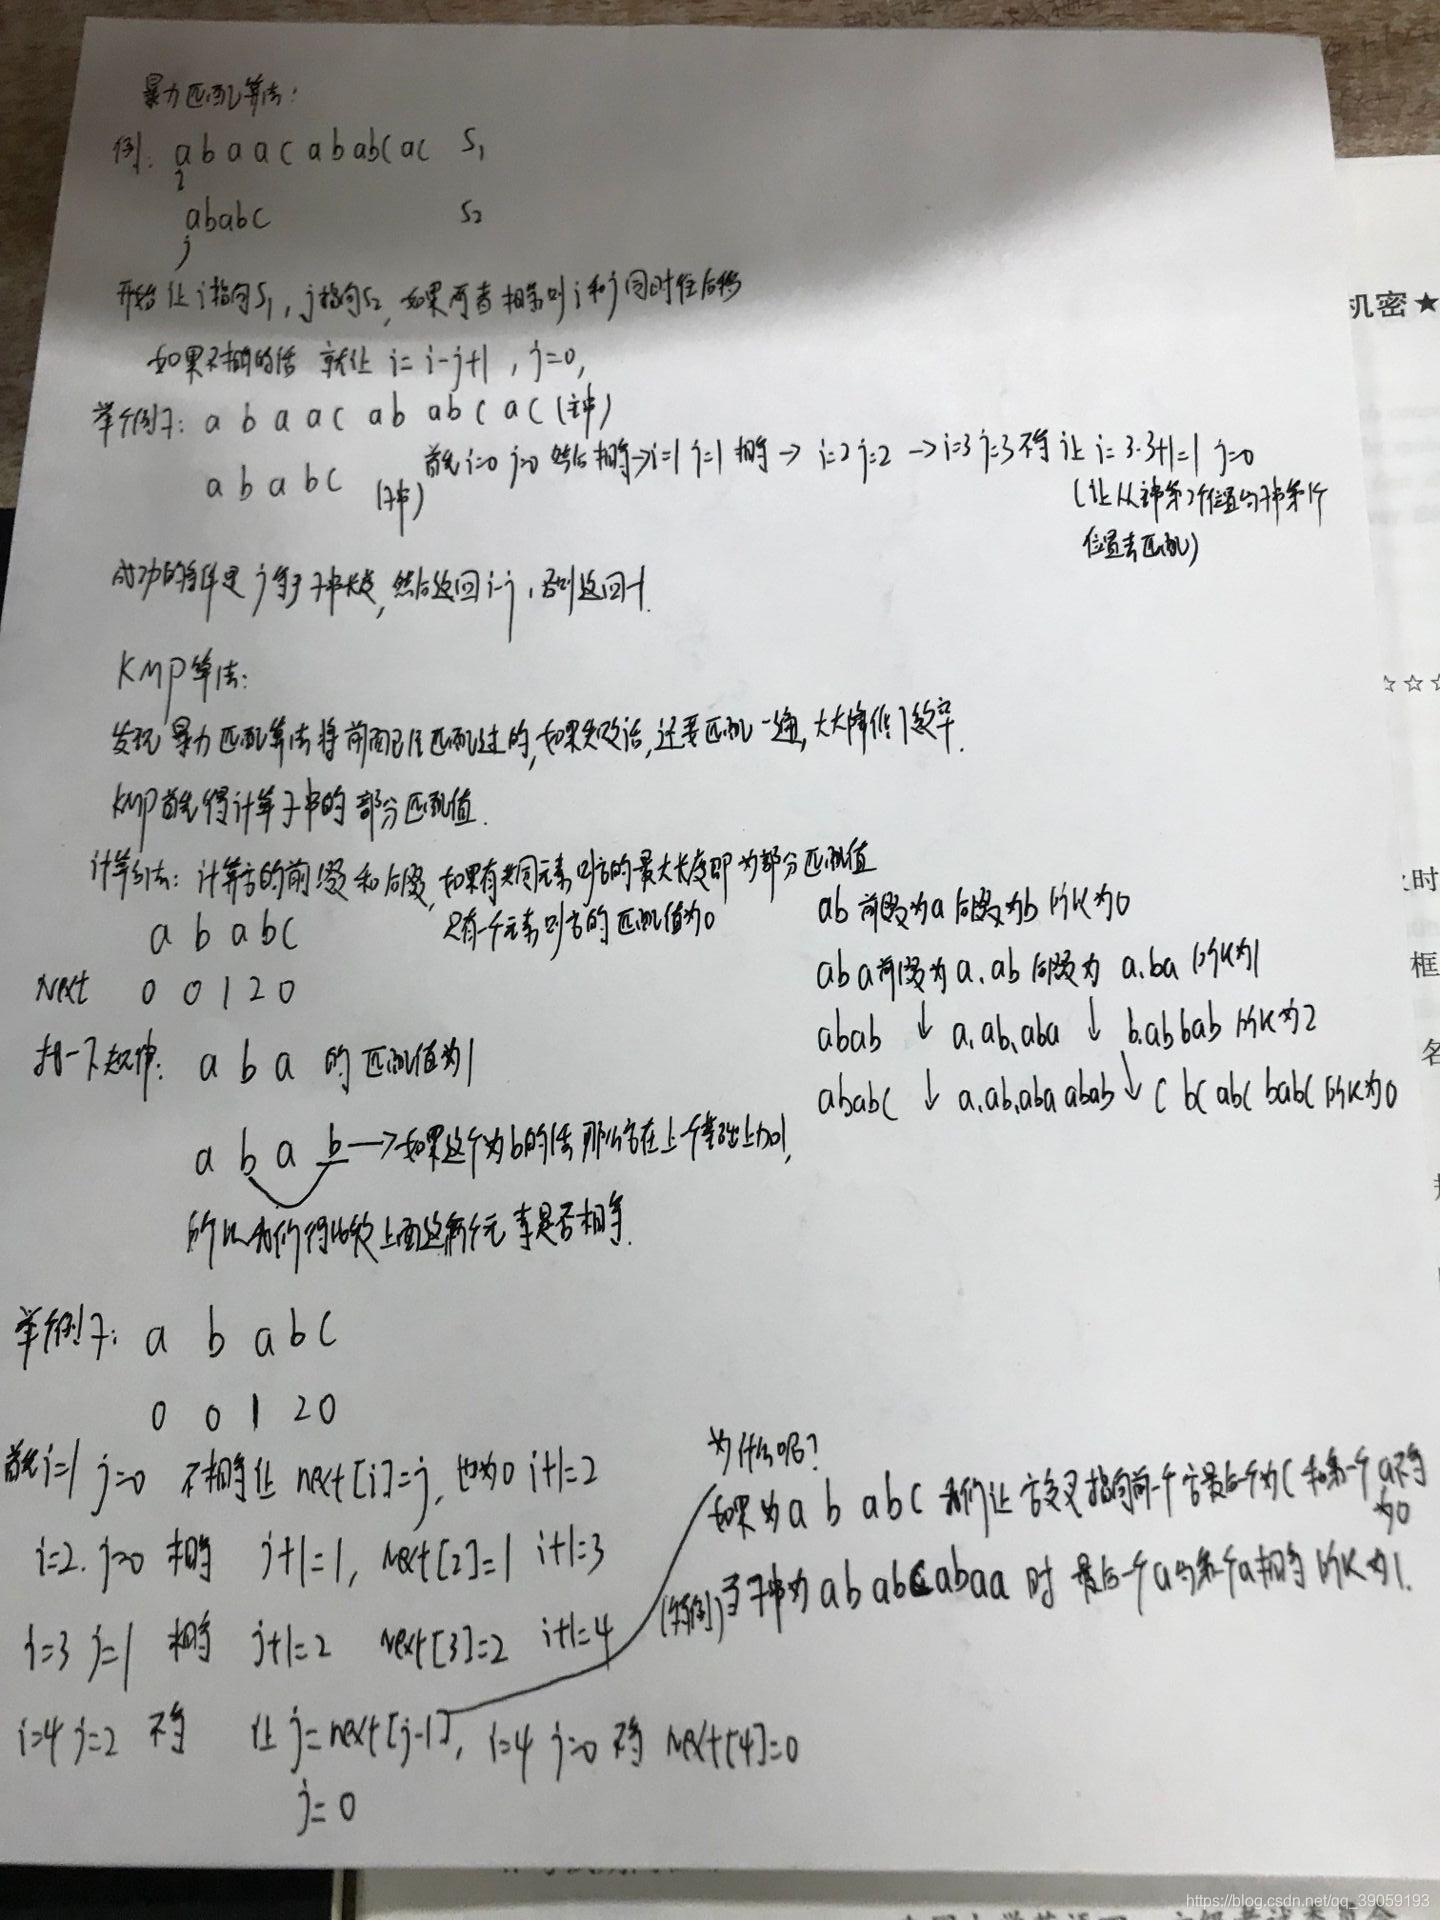 暴力匹配算法:
例: a b a a c a b a b c a c S1
i
a b a b c S2
j
开始让i指向S1, j指向S2, 如果两者相等则i和j同时往后移
如果不相等的话 就让 i= i-j+1 , j=0,
举个例子: a b a a c a b a b c a c (主串)
首先i=0 j=0 然后相等→i=1 j=1 相等→ i=2 j=2 →i=3 j=3 不等 让 i= 3-3+1=1 j=0
a b a b c (子串)
(让从主串第2个位置与子串第1个
位置去匹配)
成功的条件是 j等于子串长度, 然后返回i-j, 否则返回-1.
KMP算法:
发现暴力匹配算法将前面已经匹配过的,如果失败话,还要匹配一遍,大大降低了效率.
KMP首先得计算子串的部分匹配值.
计算方法: 计算它的前缀和后缀, 如果有共同元素则它的最大长度即为部分匹配值
只有一个元素则它的匹配值为0
a b a b c
Next 0 0 1 2 0
ab 前缀为a 后缀为b 所以为0
aba前缀为 a, ab 后缀为 a, ba 所以为1
abab ↓ a, ab, aba ↓ b, ab bab 所以为2
ababc ↓ a, ab, aba abab ↓ c bc abc babc 所以为0
找一下规律: a b a 的匹配值为1
a b a b →如果这个为b的话 那么它在上一个基础上加1,
所以我们得比较上面这两个元素是否相等.
举个例子: a b a b c
0 0 1 2 0
首先i=1 j=0 不相等让 next[i]=j, 也为0 i+1=2
i=2. j=0 相等 j+1=1, next[2]=1 i+1=3
i=3 j=1 相等 j+1=2 next[3]=2 i+1=4
i=4 j=2 不等 让 j=next[j-1], i=4 j=0 不等 next[4]=0
j=0
为什么呢?
如果为 a b a b c 我们让它又指向前一个 它最后一个为c 和第一个a不等
为0
当子串为 ababcabaa 时 最后一个a与第一个a相等 所以为1.
机密★
☆☆☆
时
框
名
https://blog.csdn.net/qq_39059193